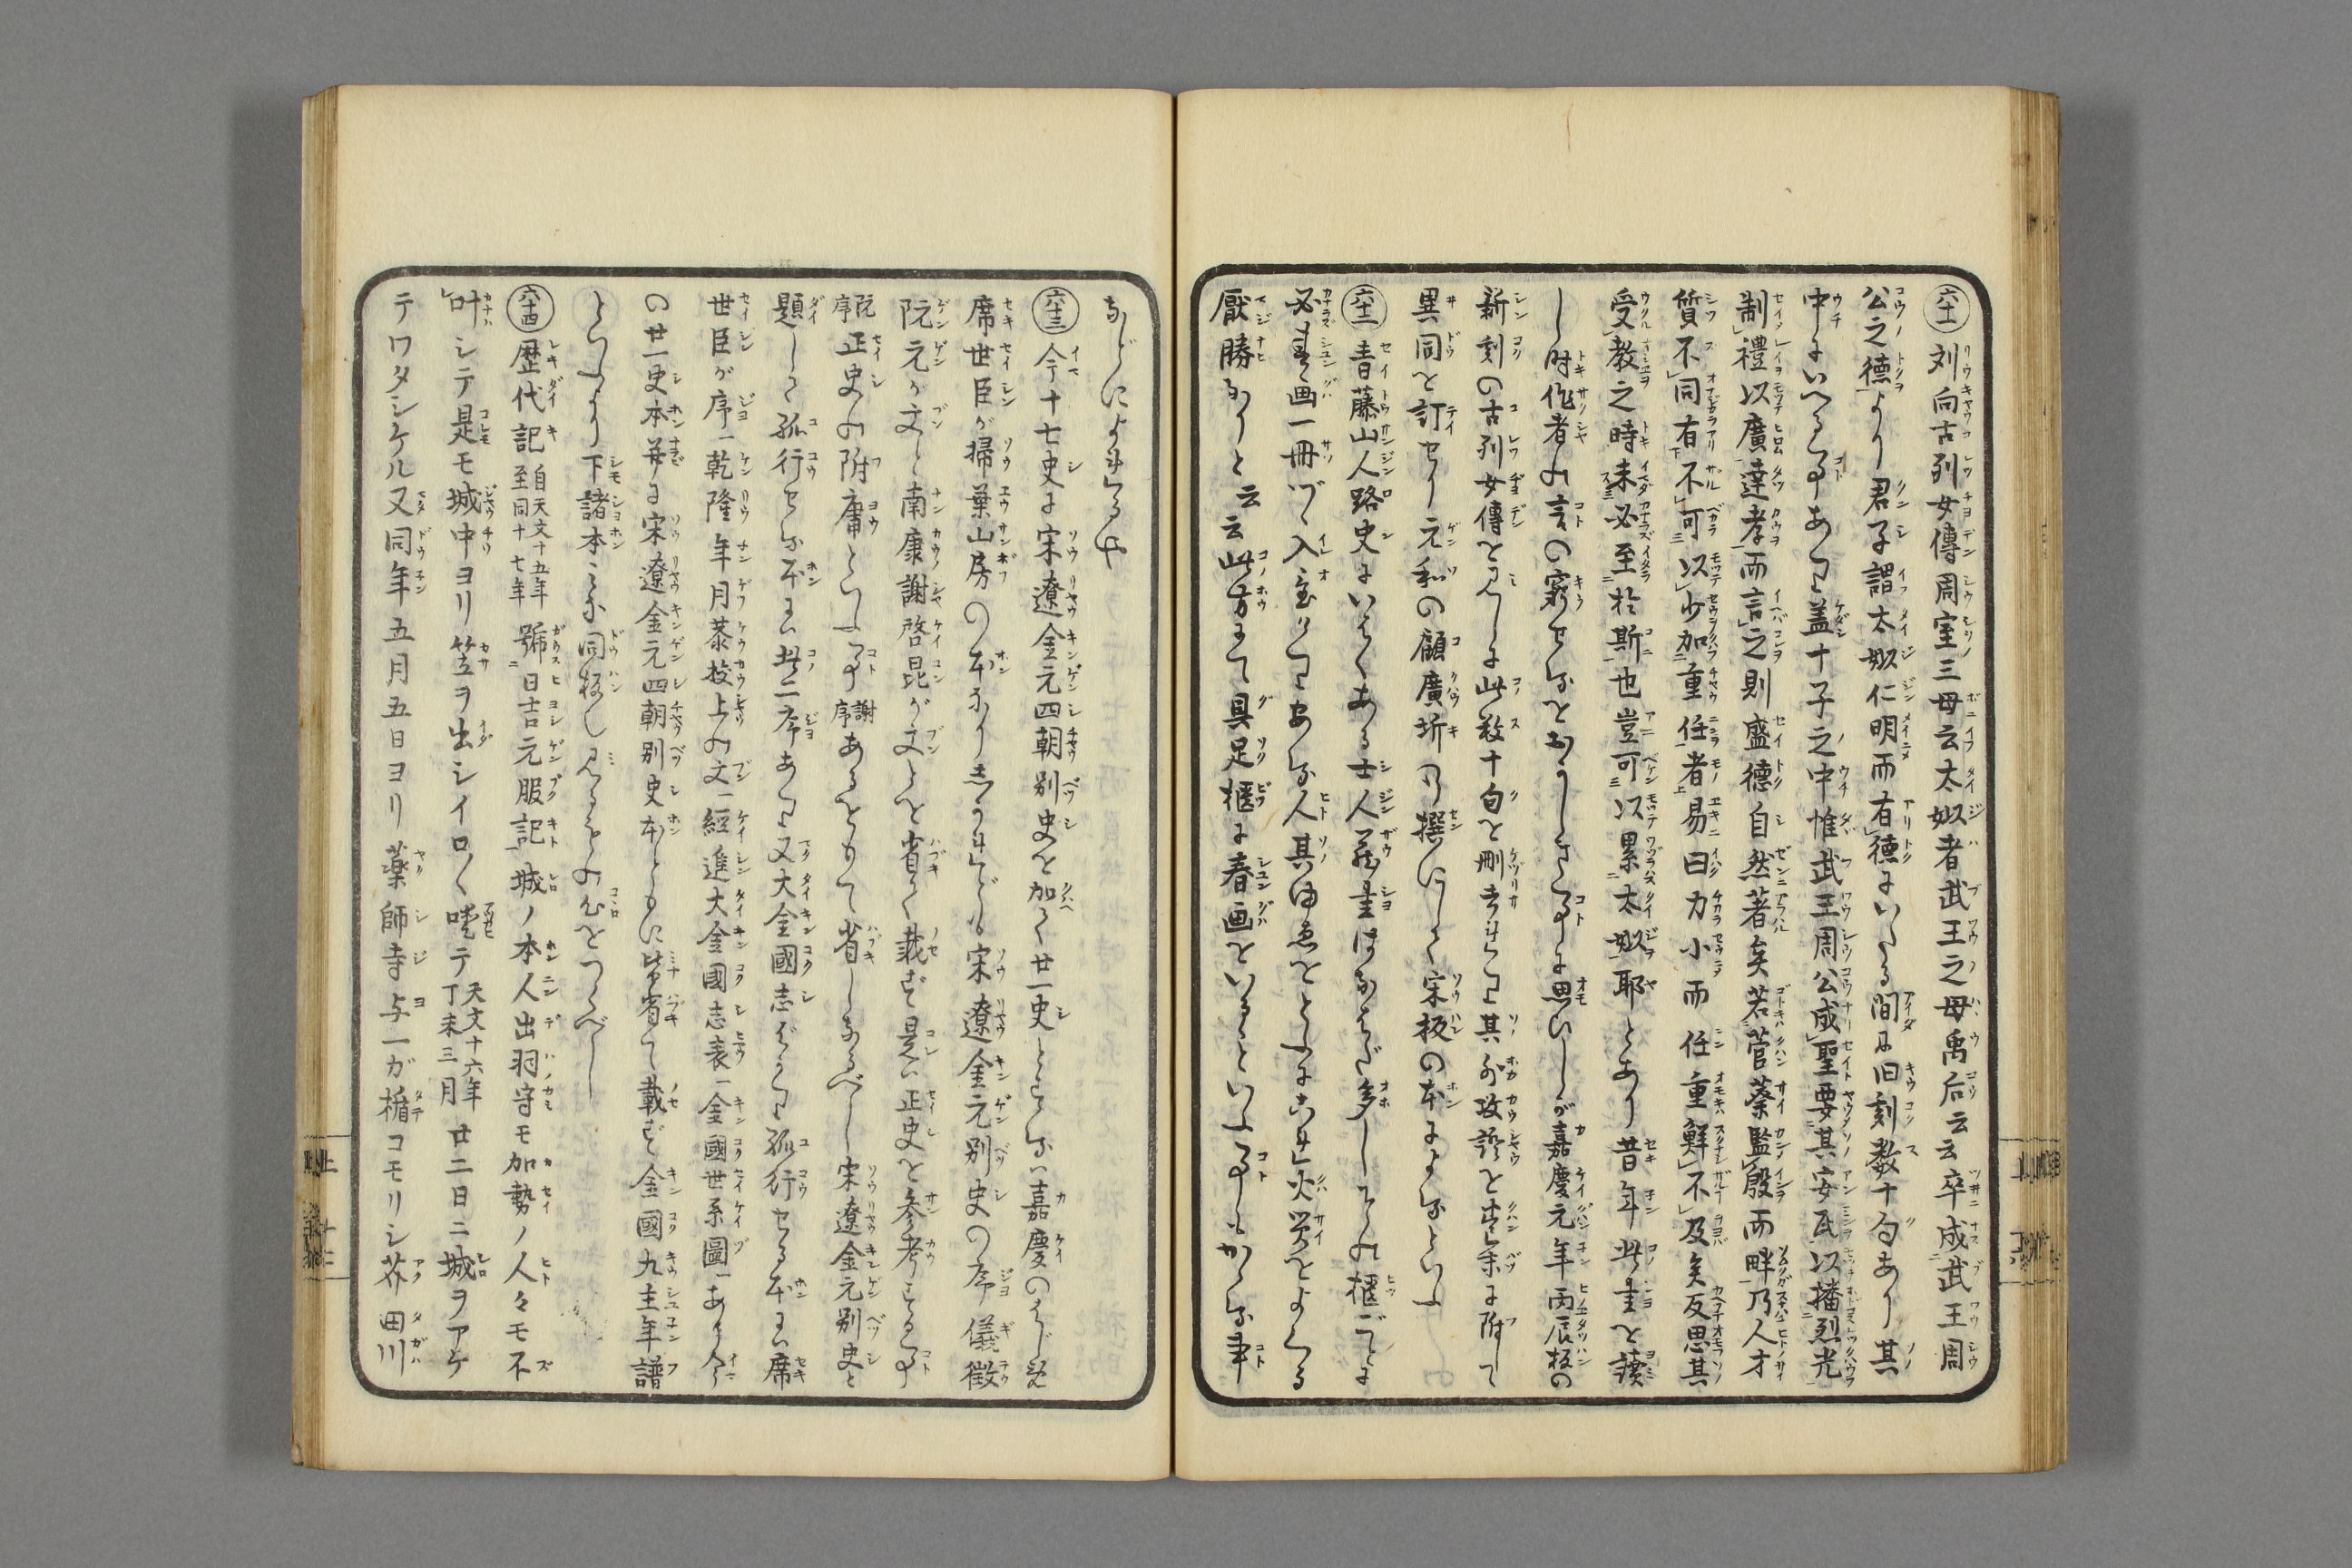 六十一 刘向古列女傳周室三母云太姒者武王之母禹后云云卒成武王周
公之德より君子謂太姒仁明而有德にいたる間に旧刻数十句あり其
中にいへる事あり盖十子之中惟武王周公成聖要其安民以播烈光
制禮以廣達孝而言之則盛德自然著矣若菅蔡監殷而畔乃人才
質不同有不可以少加重任者易曰力小而任重鮮不及矣反思其
受教之時未必至於斯也豈可以累太姒耶とあり昔年此書を讀
し時作者の言の窮せるをあやしき事に思ひしが嘉慶元年丙辰板の
新刻の古列女傳を見しに此数十句を刪去れり其外攷證を巻末に附て
異同を訂せり元和の顧廣圻の撰にして宋板の本によるといふ
六十二 青藤山人路史にいはくある士人藏書はなはだ多しそれの櫃ごとに
必春画一冊づゝ入置けりある人其由急をとふにこれ火災をよくる
厭勝なりと云云此方にて具足櫃に春画をいるといふ事もかゝる事
などによれるや
六十三 今十七史に宋遼金元四朝別史を加へて廿一史とするは嘉慶のはじめ
席世臣が掃葉山房の本なりされども宋遼金元別史の序儀徴
阮元が文と南康謝啓昆が文とを省て載ず是は正史を参考する事
阮序 正史の附庸といふ事 謝序 あるをもて省しなるべし宋遼金元別史と
題して孤行せる本には此二序あり又大金國志ばかり孤行せる本には席
世臣が序一乾隆年月恭校上の文一經進大金國志表一金國世系圖一あり今
の廿一史本并に宋遼金元四朝別史本ともに皆省て載ず金國九主年譜
といふより下諸本みな同板し見るもの心をつくべし
六十四 歴代記 自天文十五年至同十七年 號日吉元服記城ノ本人出羽守モ加勢ノ人々モ不
叶シテ是モ城中ヨリ笠ヲ出シイロ〱咾テ 天文十六年丁未三月 廿二日ニ城ヲアケ
テワタシケル又同年五月五日ヨリ薬師寺与一ガ楯コモリシ芥田川